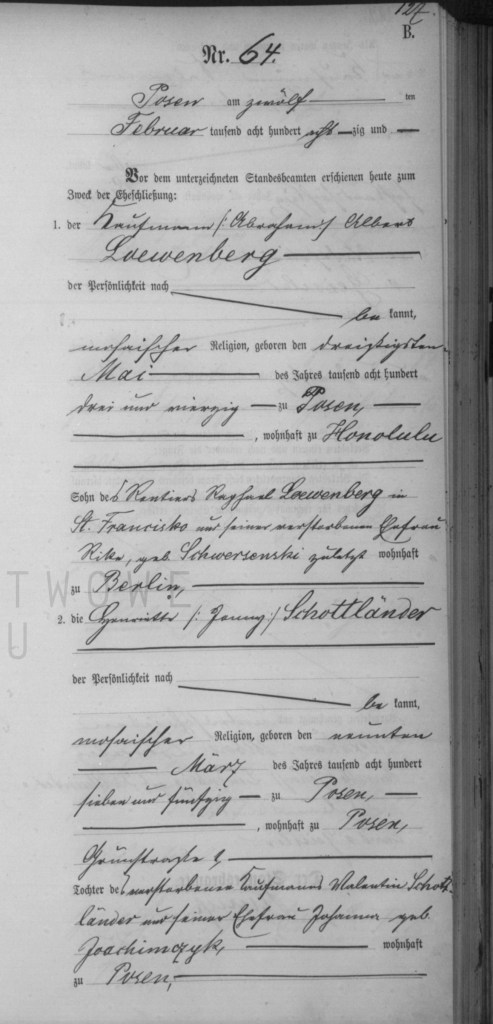 127.
B.
Nr. 64.
Posen am zwölf ten
Februar tausend acht hundert acht zig und
Vor dem unterzeichneten Standesbeamten erschienen heute zum
Zweck der Eheschließung:
1. der Kaufmann (: Abraham :) Albert
Loewenberg
der Persönlichkeit nach
be kannt,
mosaischer Religion, geboren den dreißigsten
Mai des Jahres tausend acht hundert
drei und vierzig zu Posen,
, wohnhaft zu Honolulu
Sohn des Rentiers Raphael Loewenberg in
St. Francisko und seiner verstorbenen Ehefrau
Rike, geb. Schwersenski zuletzt wohnhaft
zu Berlin,
TWOWE
U
2. die Henriette (: Jenny :) Schottländer
der Persönlichkeit nach
be kannt,
mosaischer Religion, geboren den neunten
März des Jahres tausend acht hundert
sieben und fünfzig zu Posen,
, wohnhaft zu Posen,
Grünstraße
Tochter des verstorbenen Kaufmanns Valentin Schott-
länder und seiner Ehefrau Johanna geb.
Joachimczyk, wohnhaft
zu Posen,